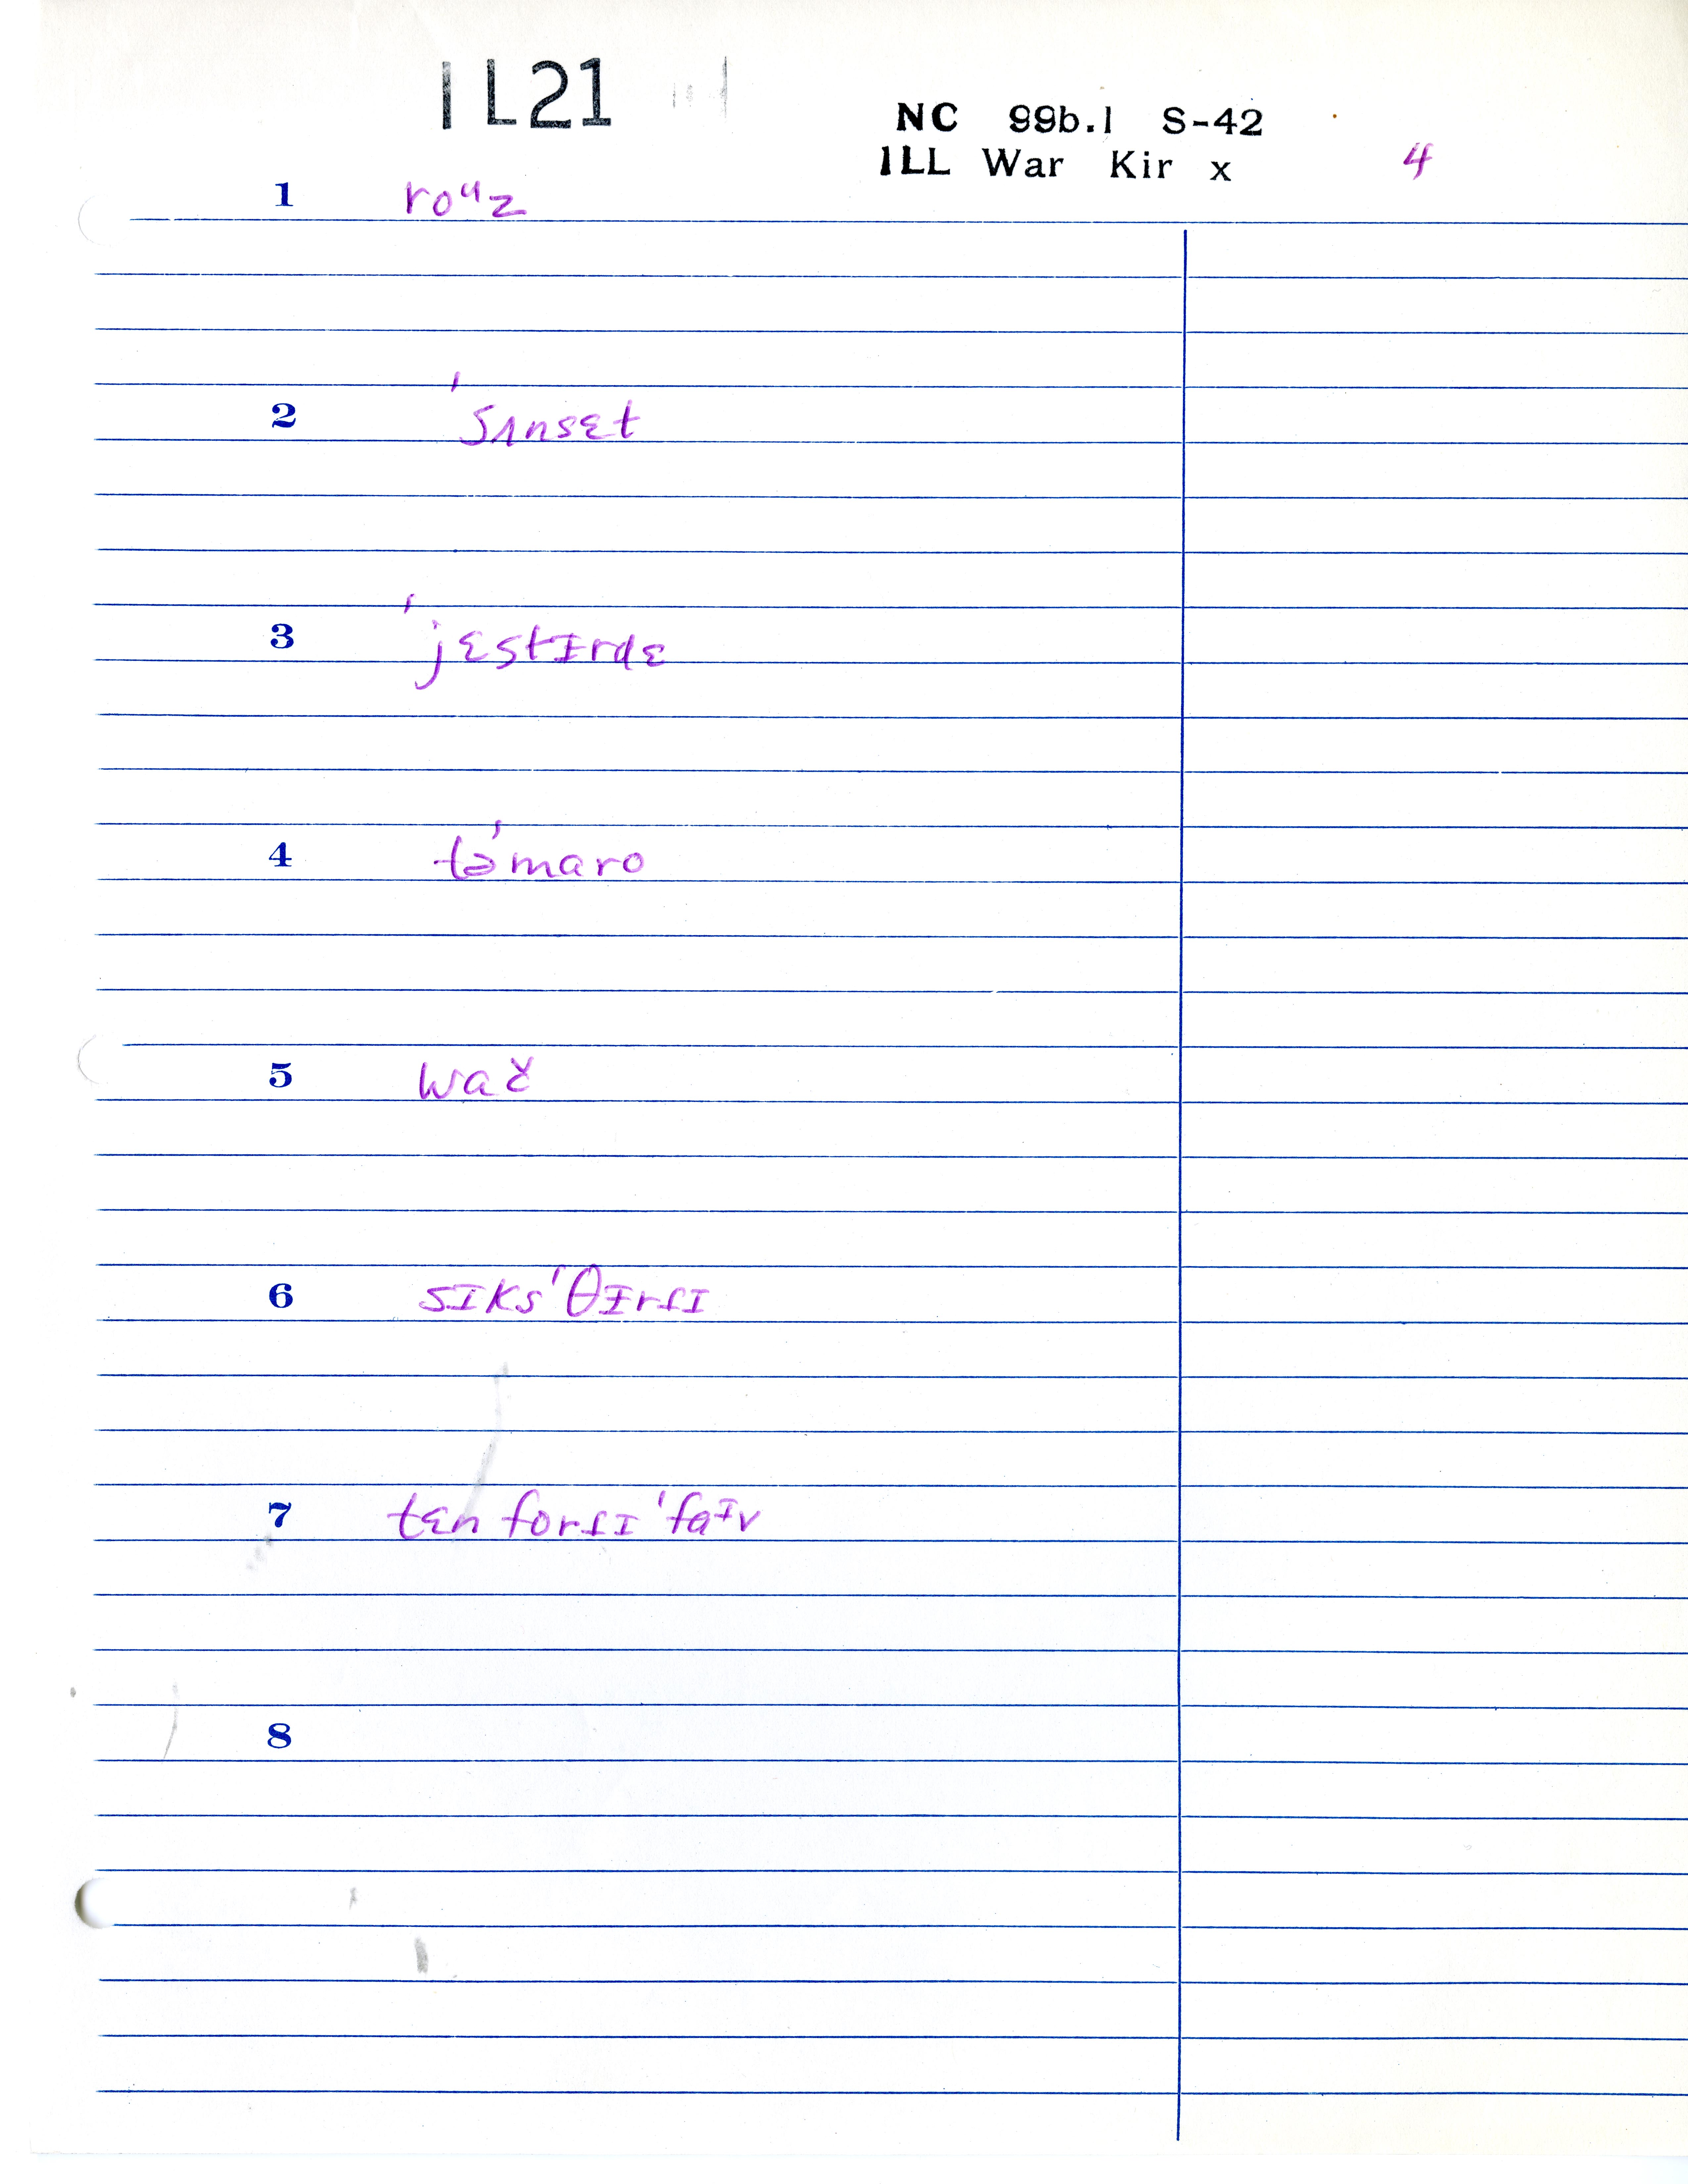 IL21
NC 99b.1 S-42
ILL War Kir x 4
1 roᶸz
2 ˈsʌnsɛt
3 ˈjɛstɪrdɛ
4 təˈmaro
5 wač
6 sɪksˈθɪrɾɪ
7 tɛn forɾɪˈfaᶦv
8